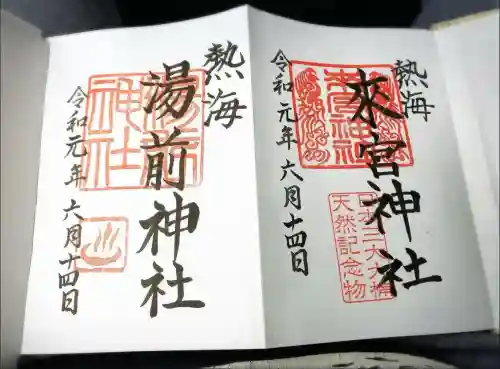 熱海
來宮神社
令和元年六月十四日
天然記念物
熱海
湯前神社
令和元年六月十四日